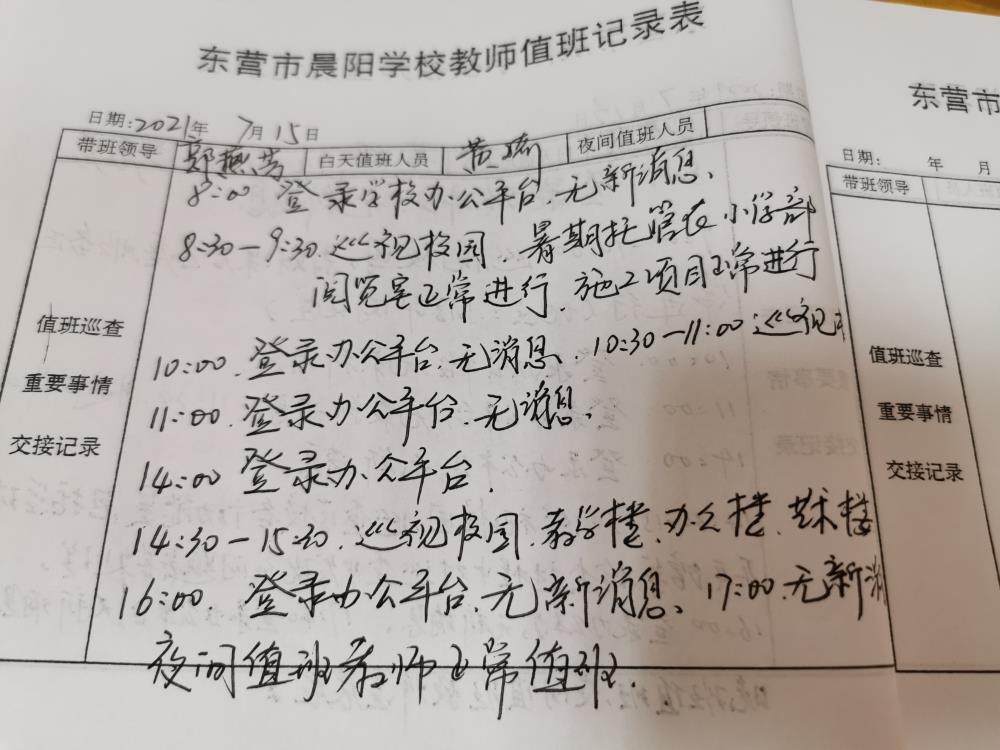 东营市晨阳学校教师值班记录表
日期:2021年 7月15日
带班领导 郭燕芳 白天值班人员 黄 夜间值班人员
8:00 登录学校办公平台,无新消息、
8:30-9:30.巡视校园 暑期托管在小学部
阅览室正常进行,施工项目正常进行
10:00.登录办公平台,无消息、10:30-11:00巡视
11:00.登录办公平台.无消息、
14:00 登录办公平台.
14:30-15:30.巡视校园.教学楼、办公楼、艺术楼
16:00. 登录办公平台、无新消息、17:00.无新消
夜间值班老师正常值班.
值班巡查
重要事情
交接记录
东营市
日期: 年 月
带班领导
值班巡查
重要事情
交接记录